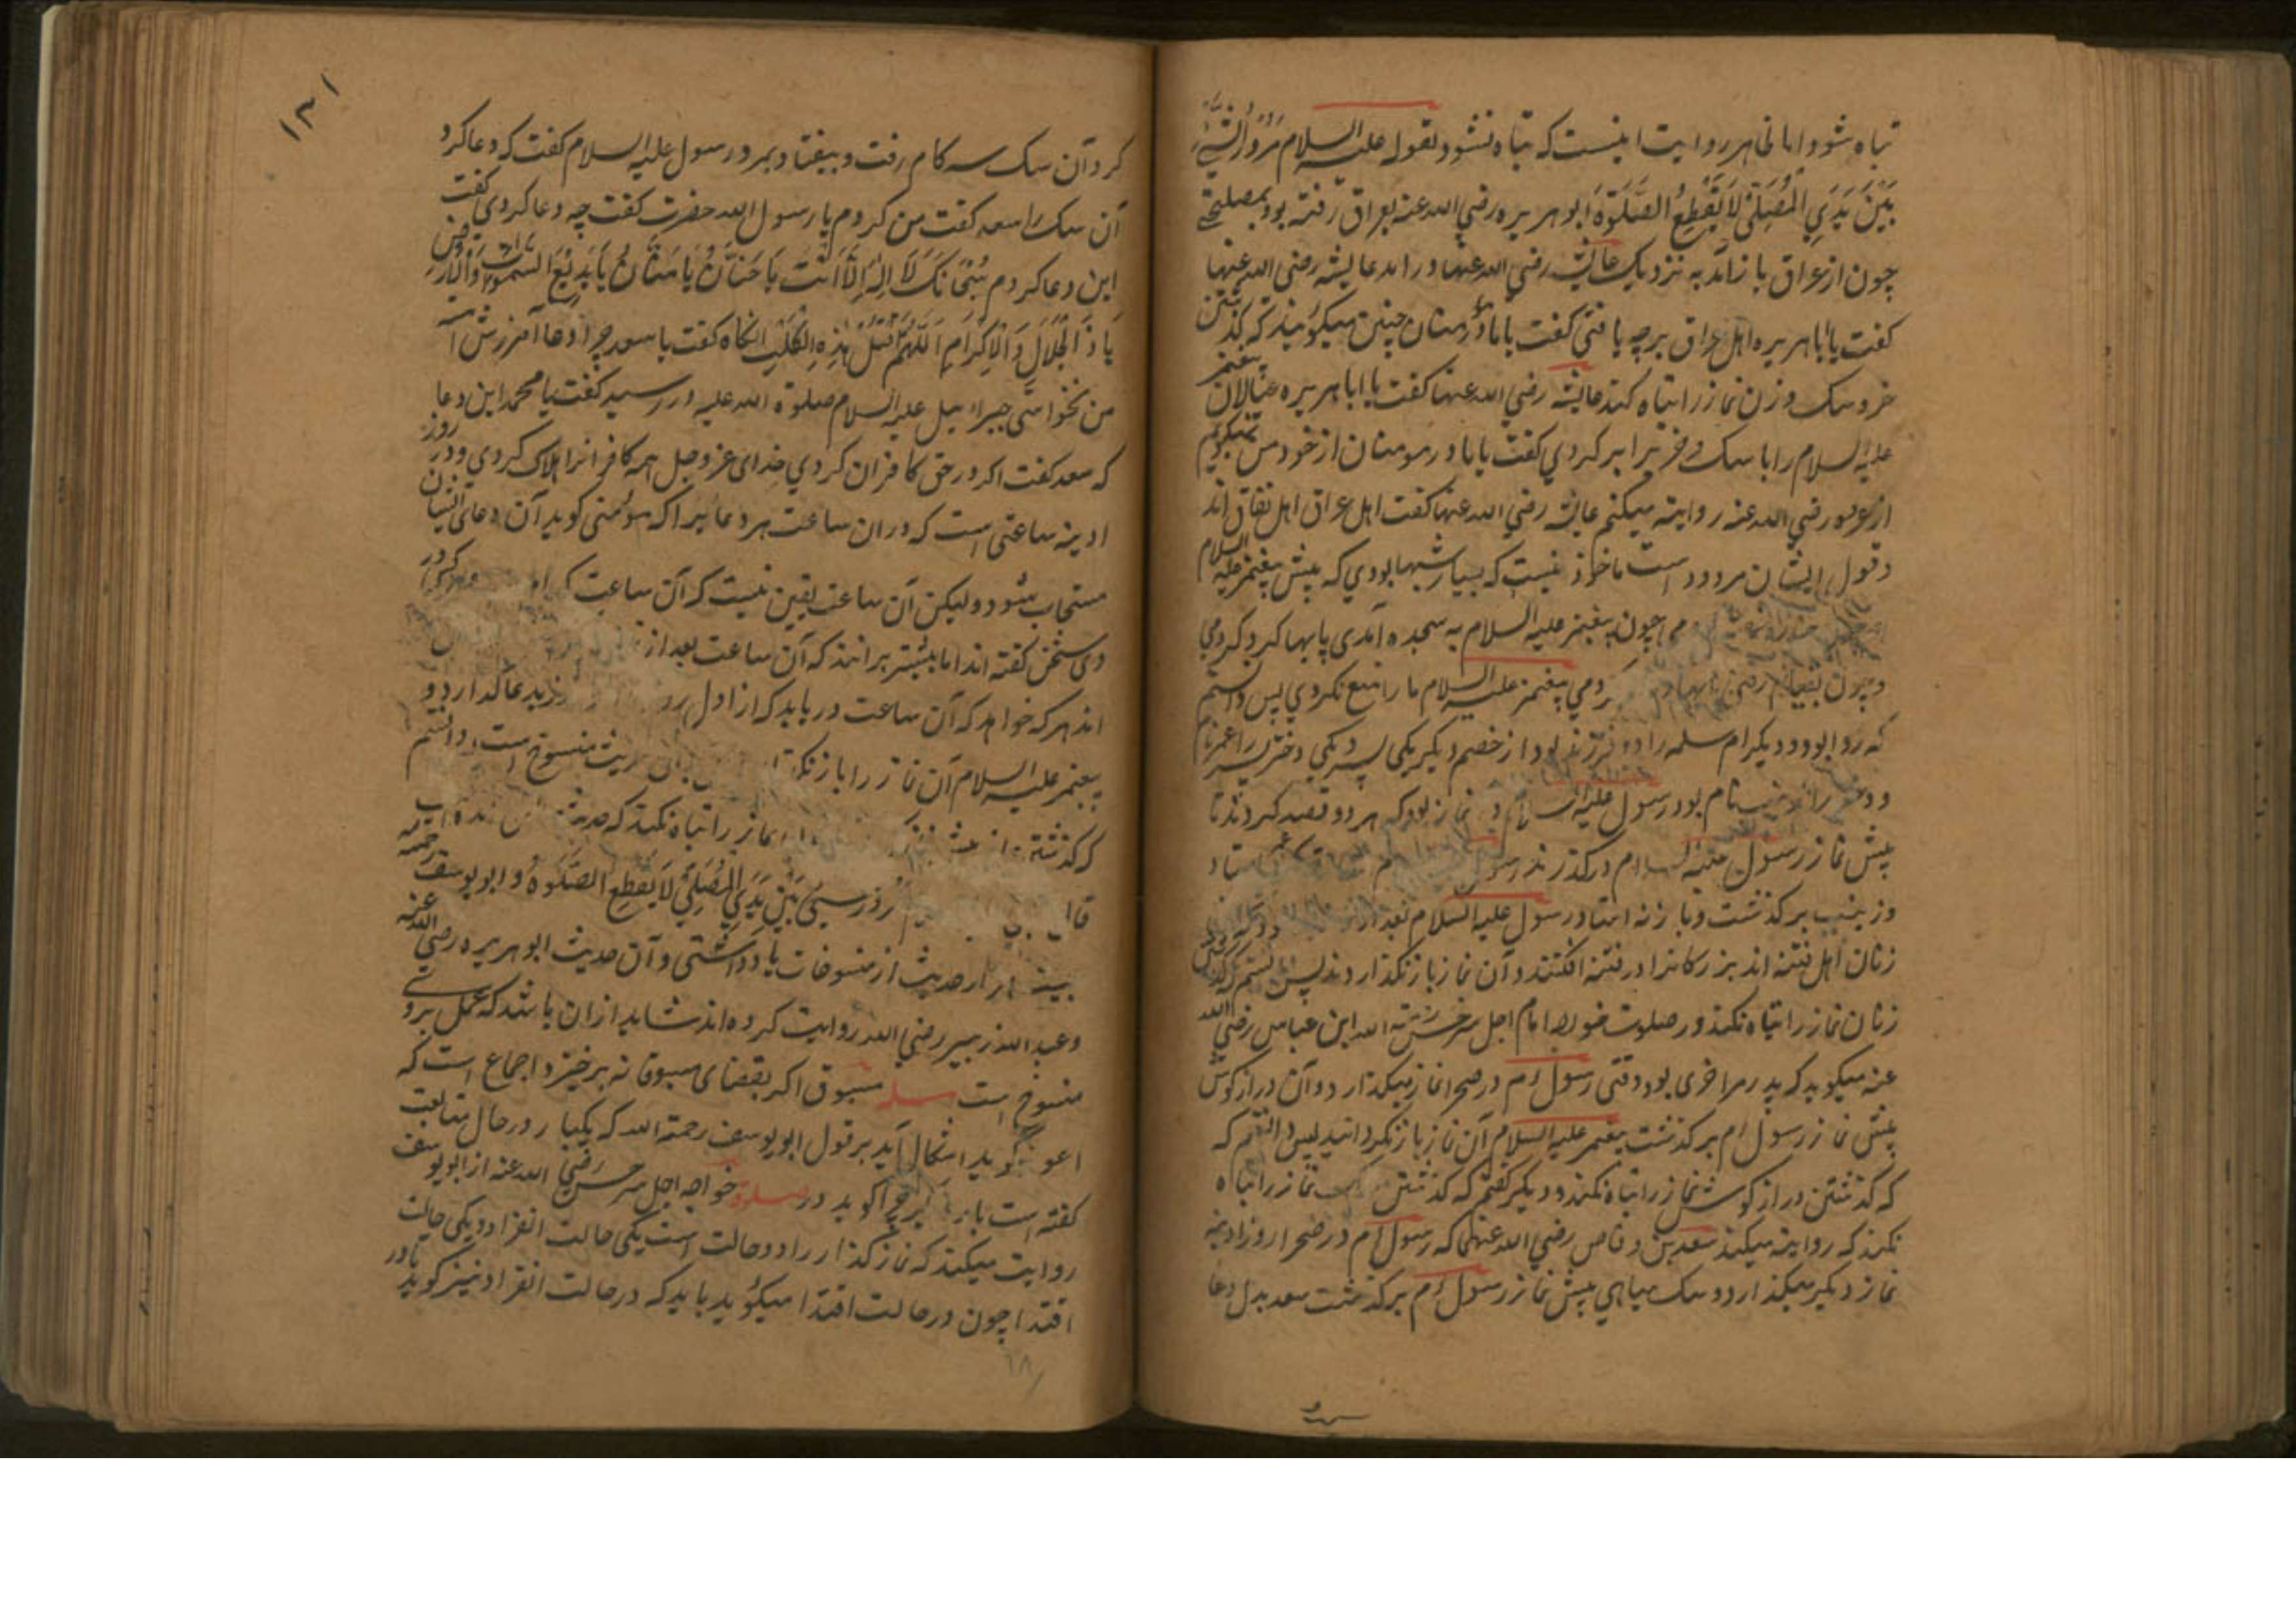 تباه شود اما ظاهر روایت اینست که تباه نشود لقوله علیه السلام مُرُوْرُ الشَّیْءِ
بَیْنَ یَدَیِ الْمُصَلِّیْ لَا یَقْطَعُ الصَّلٰوةَ ابو هریره رضی الله عنه بعراق رفته بود بمصلحتی
چون از عراق باز آمد به نزدیک عائشه رضی الله عنها در امد عایشه رضی الله عنها
کفت یا ابا هریره اهل عراق بر چه یافتی کفت یا مادر مؤمنان چنین میکویند که کذشتن
خر و سک و زن نماز را تباه کند عایشه رضی الله عنها کفت یا ابا هریره عیالان پیغمبر
علیه السلام را با سک و خر برابر کردی کفت یا مادر مومنان از خود من نمیکویم
از عمر رضی الله عنه روایته میکنم عایشه رضی الله عنها کفت اهل عراق اهل نفاق اند
و قول ایشان مردود است ماخوذ نیست که بسیار شبها بودی که پیش پیغمبر علیه السلام
چون پیغمبر علیه السلام به سجده آمدی پایها کرد کردمی
و چون بقیام رفتی پایها کردمی پیغمبر علیه السلام ما را منع نکردی پس دانستم
که روا بود و دیکر ام سلمه را دو فرزند بود از خصم دیکر یکی پسر و یکی دختر پسر را عمر نام
و دختر را زینب نام بود رسول علیه السلام در نماز بود که هر دو قصد کردند تا
پیش نماز رسول علیه السلام درکذرند رسول
و زینب برکذشت و باز نه استاد رسول علیه السلام بعد از
زنان اهل فتنه اند بزرکانرا در فتنه افکنند و آن نماز باز نکذاردند پس دانستم که کذشتن
زنان نماز را تباه نکند و در صلوة خواجه امام اجل سرخسی رحمة الله ابن عباس رضی الله
عنه میکوید که پدر مرا خری بود وقتی رسول ءم در صحرا نماز میکذارد و آن دراز کوش
پیش نماز رسول ءم برکذشت پیغمبر علیه السلام آن نماز باز نکردانید پس دانستم که
که کذشتن دراز کوش نماز را تباه نکند و دیکر کفتم که کذشتن سک نماز را تباه
نکند که روایته میکند سعد بن وقاص رضی الله عنهما که رسول ءم در صحرا روز ادینه
نماز دیکر میکذارد و سک سیاهی پیش نماز رسول ءم برکذشت سعد بدل دعا
۱۳۱
کرد آن سک سه کام رفت و بیفتاد و بمرد رسول علیه السلام کفت که دعا کرد
آن سک را سعد کفت من کردم یا رسول الله حضرت کفت چه دعا کردی کفت
این دعا کردم سُبْحَانَکَ لَا اِلٰهَ اِلَّا اَنْتَ یَا حَنَّانُ یَا مَنَّانُ یَا بَدِیْعَ السَّمٰوَاتِ وَالْاَرْضِ
یَا ذَا الْجَلَالِ وَالْاِکْرَامِ اَللّٰهُمَّ اقْتُلْ هٰذِهِ الْکَلْبَ انکاه کفت یا سعد چرا دعا آمرزش امت
من نخواستی جبرائیل علیه السلام صلوة الله علیه در رسید کفت یا محمد این دعا
که سعد کفت اکر در حق کافران کردی خدای عز و جل همه کافرانرا هلاک کردی و در روز
ادینه ساعتی است که دران ساعت هر دعائیرا که مؤمنی کوید آن دعای ایشان
مستجاب شود و لیکن آن ساعت یقین نیست که آن ساعت کدام
وی سخن کفته اند اما بیشتر برانند که آن ساعت بعد از
اند هر که خواهد که آن ساعت دریابد که از اول روز
پیغمبر علیه السلام آن نماز را باز نکر منسوخ است و دانستم
که کذشته نماز را تباه نکند که حدیث
قال بَیْنَ یَدَیِ الْمُصَلِّیْ لَا یَقْطَعُ الصَّلٰوةَ و ابو یوسف رحمة
هزار حدیث از منسوخات یاد داشتی و آن حدیث ابو هریره رضی الله عنه
و عبد الله زبیر رضی الله روایت کرده اند شاید از ان باشد که عمل بر وی
منسوخ است مسله مسبوق اکر بقضای مسبوقانه برخیزد اجماع است که
اعوذ کوید اشکال آید بر قول ابو یوسف رحمة الله که یکبار در حال متابعت
کفته است بار دیکر چرا کوید در صلوة خواجه اجل سرخسی رضی الله عنه از ابو یوسف
روایت میکند که نماز کذار را دو حالت است یکی حالت انفراد و یکی حالت
اقتدا چون در حالت اقتدا میکوید باید که در حالت انفراد نیز کوید تا در